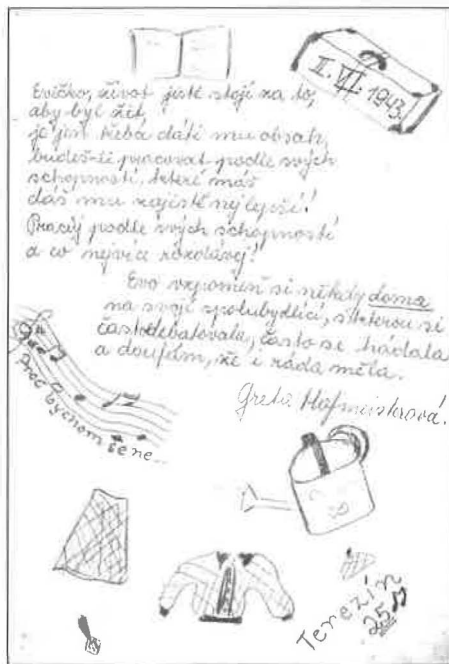 II. VII. 1943.
Evičko, život jistě stojí za to,
aby byl žit,
je jen třeba dáti mu obsah,
budeš-li pracovat podle svých
schopností, které máš
dáš mu zajisté nejlepší!
Pracuj podle svých schopností
a co nejvíce rozdávej!
Evo vzpomeň si někdy doma
na svojí spolubydlící, s kterou si
často debatovala, často se hádala
a doufám, že i ráda měla.
Greta Hofmeistrová.
Proč
bychom se ne...
Terezín
25